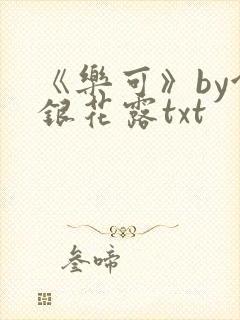 《樂可》by金
銀花露txt
叁啼